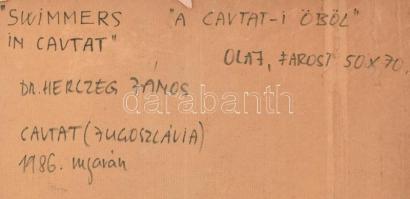 "SWIMMERS "A CAVTAT-I ÖBÖL"
IN CAVTAT"
OLAJ, FAROST 50X70,
DR. HERCZEG JÁNOS
darabanth
CAVTAT (JUGOSZLÁVIA)
1986. nyarán